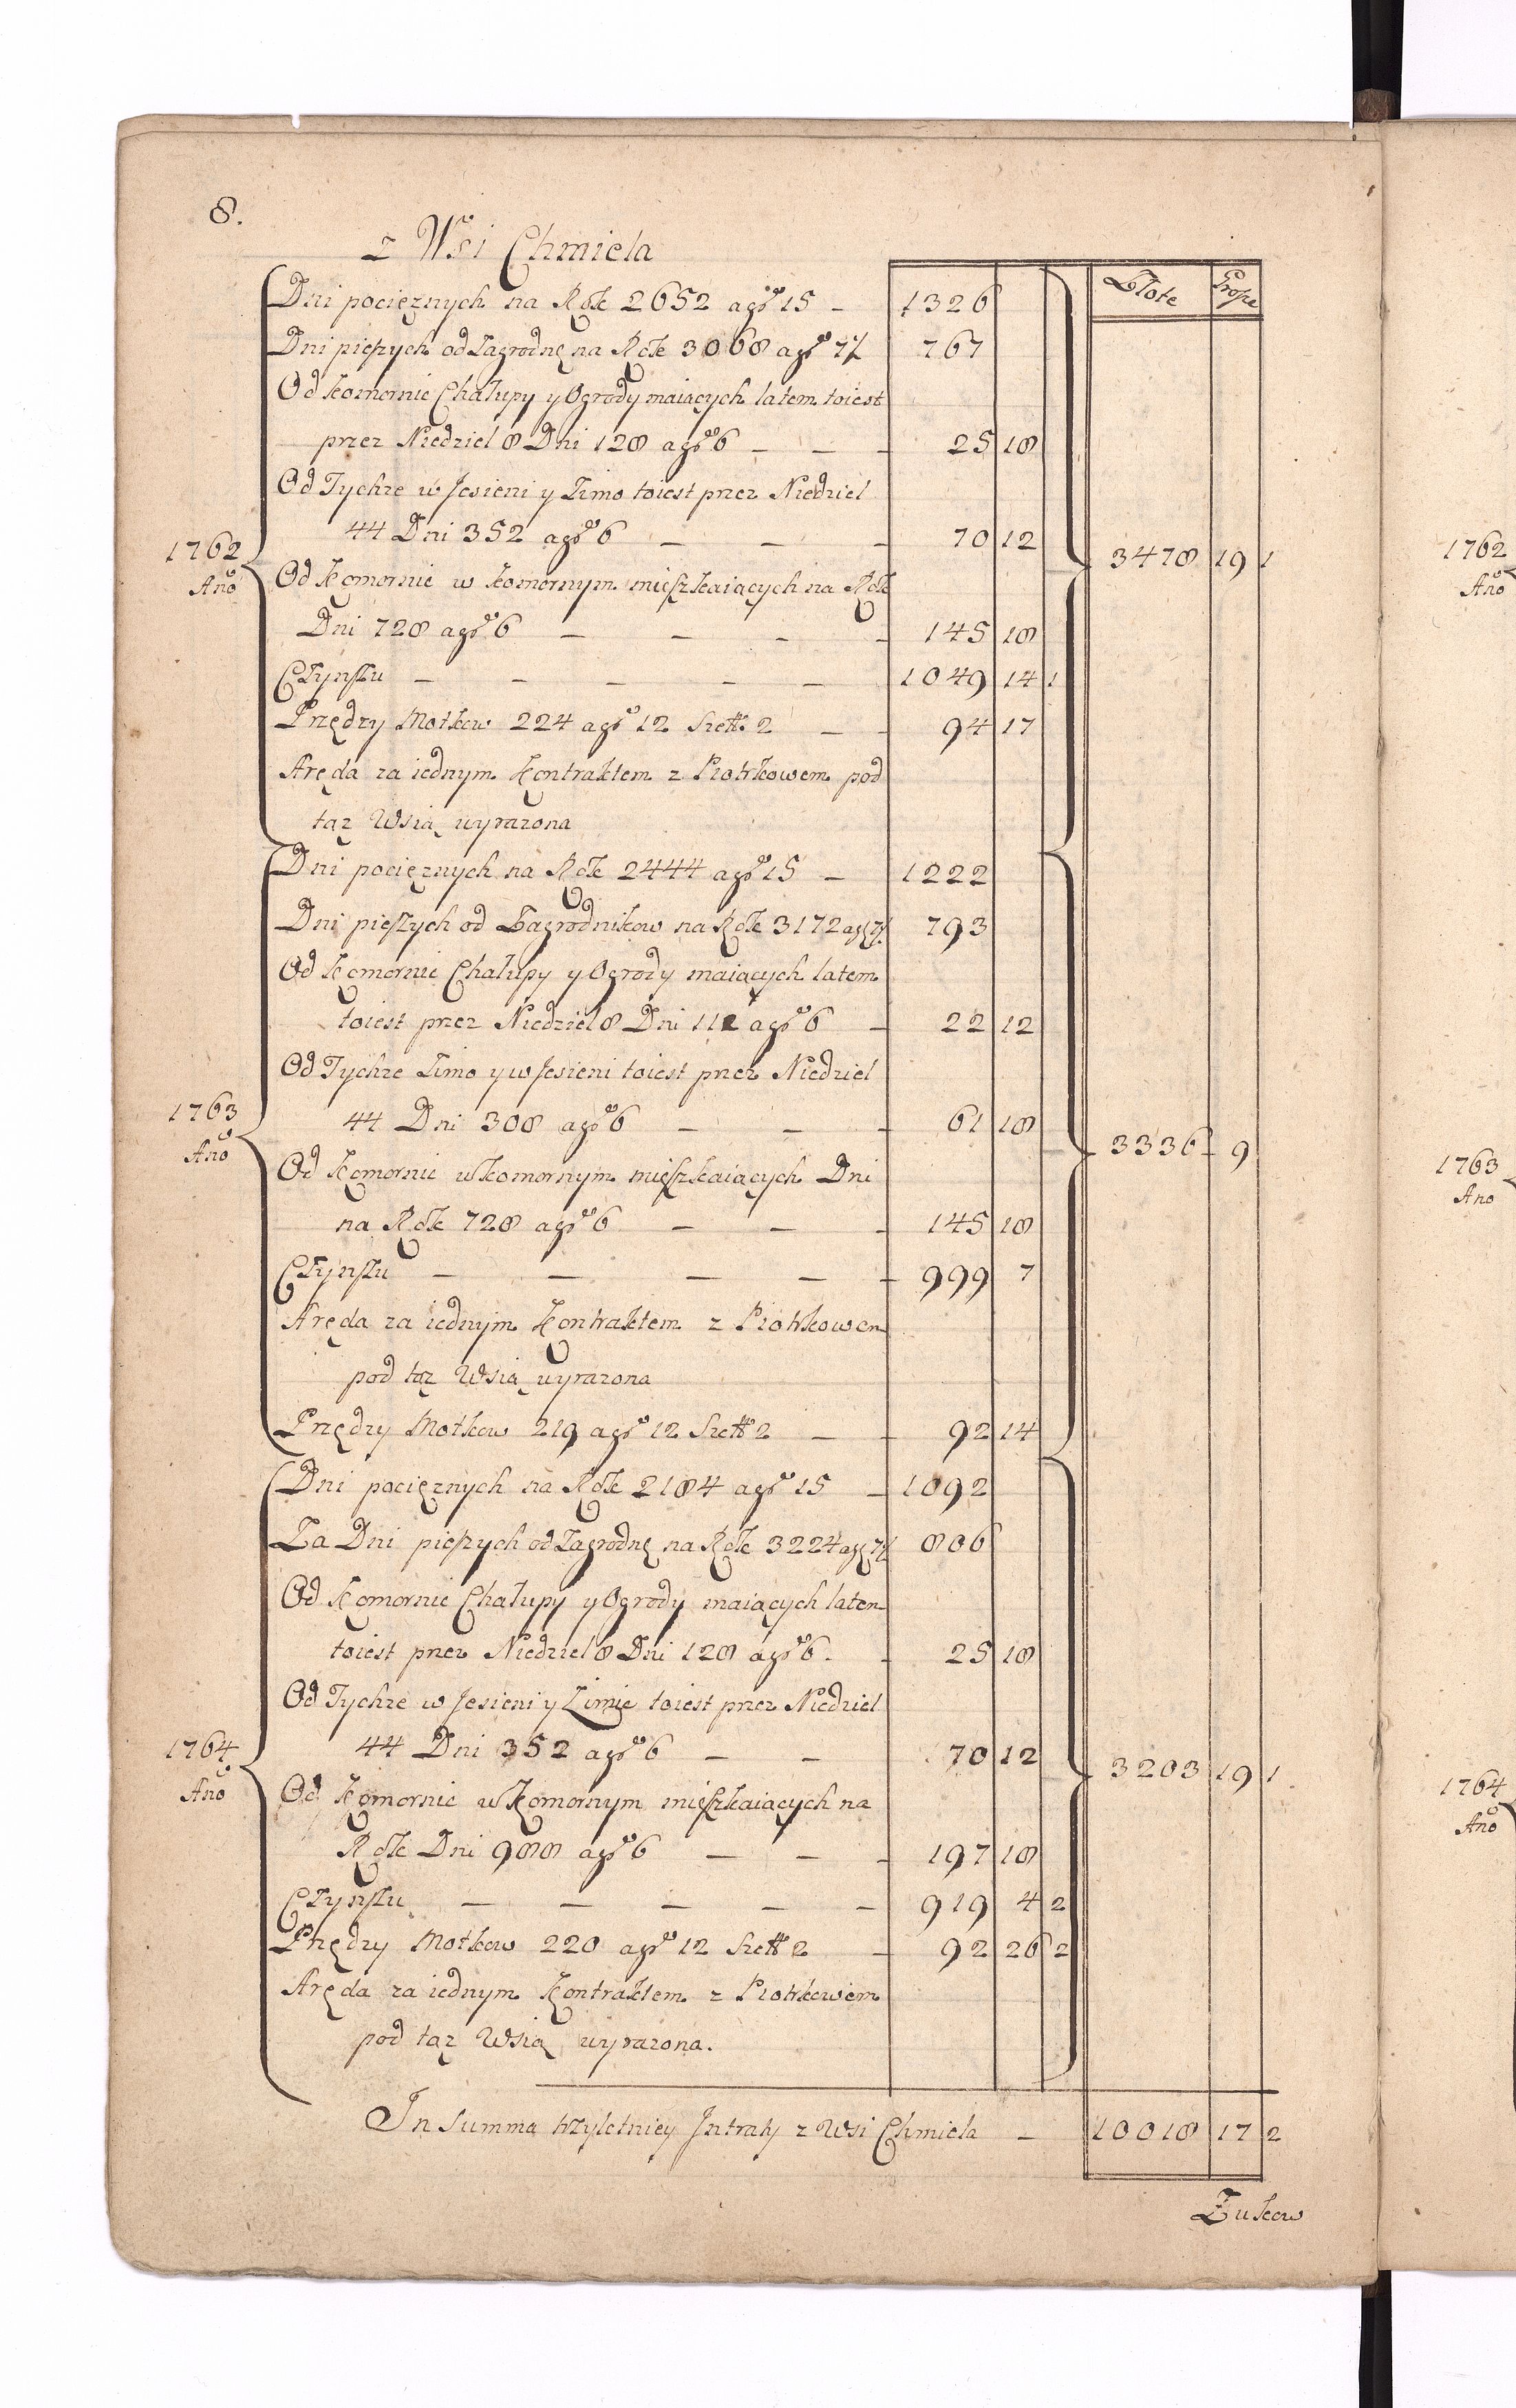 8.
z Wsi Chmiela
Złote Grosze
Dni pocięznych na Rok 2652 a gro 15 – 1326
Dni pieszych od Zagrodnę na Rok 3068 a gro 7½ 767
Od komornic Chałupy y Ogrody maiących latem toiest
przez Niedziel 8 Dni 128 a gro 6 – – – 25 18
Od Tychze w Jesieni y Zimo toiest przez Niedziel
44 Dni 352 a gro 6 – – – 70 12
1762 Año
3478 19 1
Od Komornic w komornym mieszkaiących na Rok
Dni 728 a gro 6 – – – – 145 18
Czynszu – – – – – 1049 14 1
Przędzy Motkow 224 a gro 12 Szel. 2 – – 94 17
Aręda za iednym Kontraktem z Piotrkowem pod
tąz Wsią wyrazona
Dni pocięznych na Rok 2444 a gro 15 – 1222
Dni pieszych od Zagrodnikow na Rok 3172 a g 7½ 793
Od Komornic Chałupy y Ogrody maiących latem
toiest przez Niedziel 8 Dni 112 a gro 6 – 22 12
Od Tychze Zimo y w Jesieni toiest przez Niedziel
44 Dni 308 a gro 6 – – – 61 18
1763 Año
3336 9
Od Komornic w komornym mieszkaiących Dni
na Rok 728 a gro 6 – – – 145 18
Czynszu – – – – – 999 7
Aręda za iednym Kontraktem z Piotrkowem
pod tąz Wsią wyrazona
Przędzy Motkow 219 a gro 12 Szel. 2 – – 92 14
Dni pocięznych na Rok 2184 a gro 15 – 1092
Za Dni pieszych od Zagrodnę na Rok 3224 a g 7½ 806
Od Komornic Chałupy y Ogrody maiących latem
toiest przez Niedziel 8 Dni 128 a gro 6. – 25 18
Od Tychze w Jesieni y Zimie toiest przez Niedziel
44 Dni 352 a gro 6 – – 70 12
1764 Año
3203 19 1
Od Komornic w Komornym mieszkaiących na
Rok Dni 988 a gro 6 – – – 197 18
Czynszu – – – – – 919 4 2
Przędzy Motkow 220 a gro 12 Szel. 2 – 92 26 2
Aręda za iednym Kontraktem z Piotrkowem
pod tąz Wsią wyrazona.
In Summa trzyletniey Intraty z Wsi Chmiela – 10018 17 2
Zukow
1762
Año
1763
Ano
1764
Año